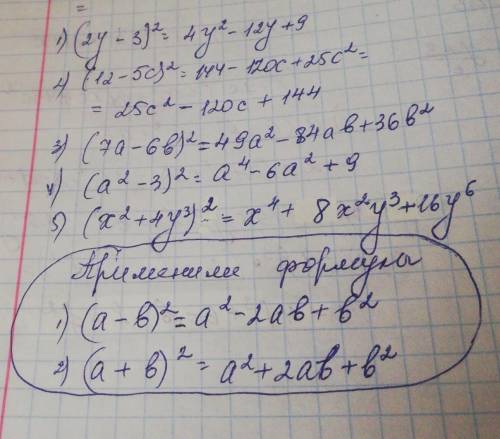 =
1) (2y-3)² = 4y²-12y+9
2) (12-5c)² = 144-120c+25c² =
= 25c² - 120c + 144
3) (7a-6b)² = 49a²-84ab+36b²
4) (a²-3)² = a⁴-6a²+9
5) (x²+4y³)² = x⁴ + 8x²y³+16y⁶
Применили формулы
1) (a-b)² = a²-2ab+b²
2) (a+b)² = a²+2ab+b²